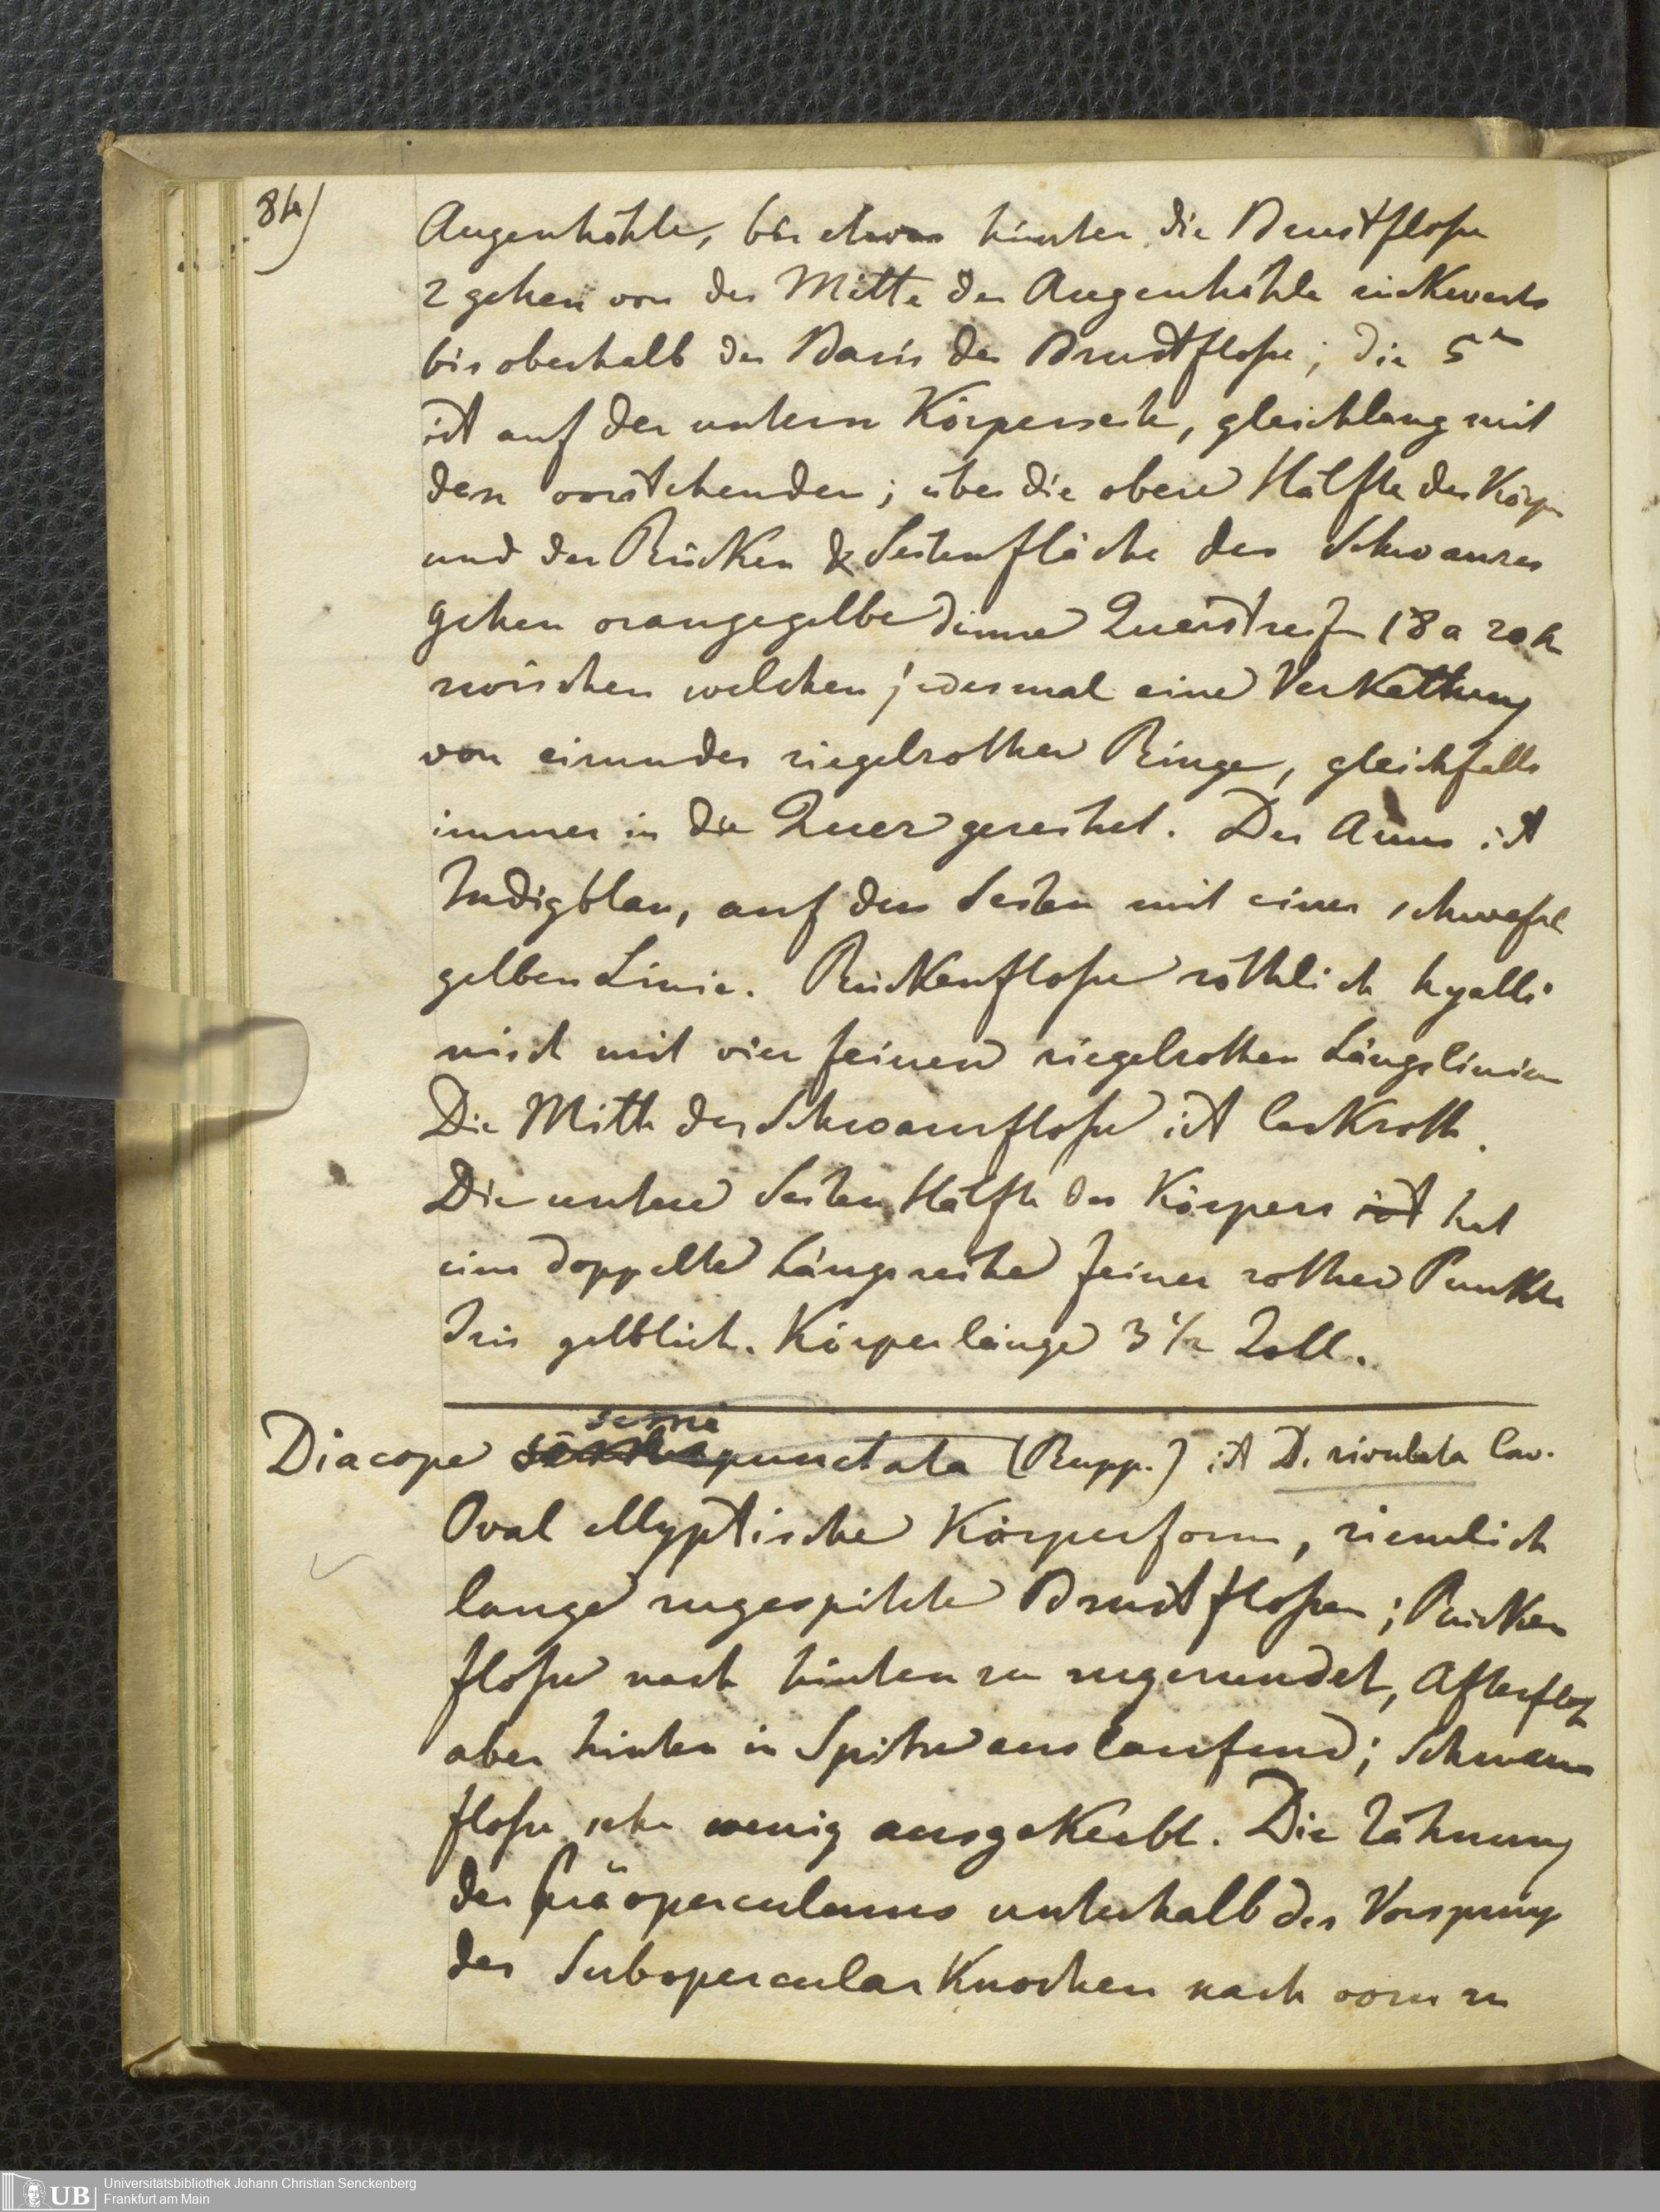 84)
Augenhöhle, bis etwas hinter die Brustflosse
2 gehen von der Mitte der Augenhöhle rückwerts
bis oberhalb der Basis der Brustflosse; die 5te
ist auf der untern Körperseite, gleichlang mit
den vorstehenden; über die obere Hälfte des Körp
und der Rücken & Seitenfläche des Schwanzes
gehen orangegelbe dünne Querstreifen 18 a 20
zwischen welchen jedesmal eine Verkettung
von eirunder ziegelrother Ringe, gleichfalls
immer in die Quer gereihet. Der Anus ist
Indigblau, auf den Seiten mit einer schwefel
gelben Linie. Rückenflosse röthlich hyalli
nisch mit vier feinen ziegelrothen Längslinien
Die Mitte der Schwanzflosse ist lackroth.
Die untere Seiten Hälfte des Körpers ist hat
eine doppelte Längsreihe feiner rother Punkte
Iris gelblich. Körperlänge 3 1/2 Zoll.
semi
Diacope punctata (Rupp.) ist D. rivulata Cuv.
Oval ellyptische Körperform, ziemlich
lange zugespitzte Brustflossen; Rücken
flosse nach hinten zu zugerundet, Afterfloss
aber hinten in Spitze auslaufend; Schwanz
flosse sehr wenig ausgekerbt. Die Zähnung
des präoperculums unterhalb des Vorsprungs
des Subopercular Knochen nach vorn zu
Universitätsbibliothek Johann Christian Senckenberg
Frankfurt am Main
UB